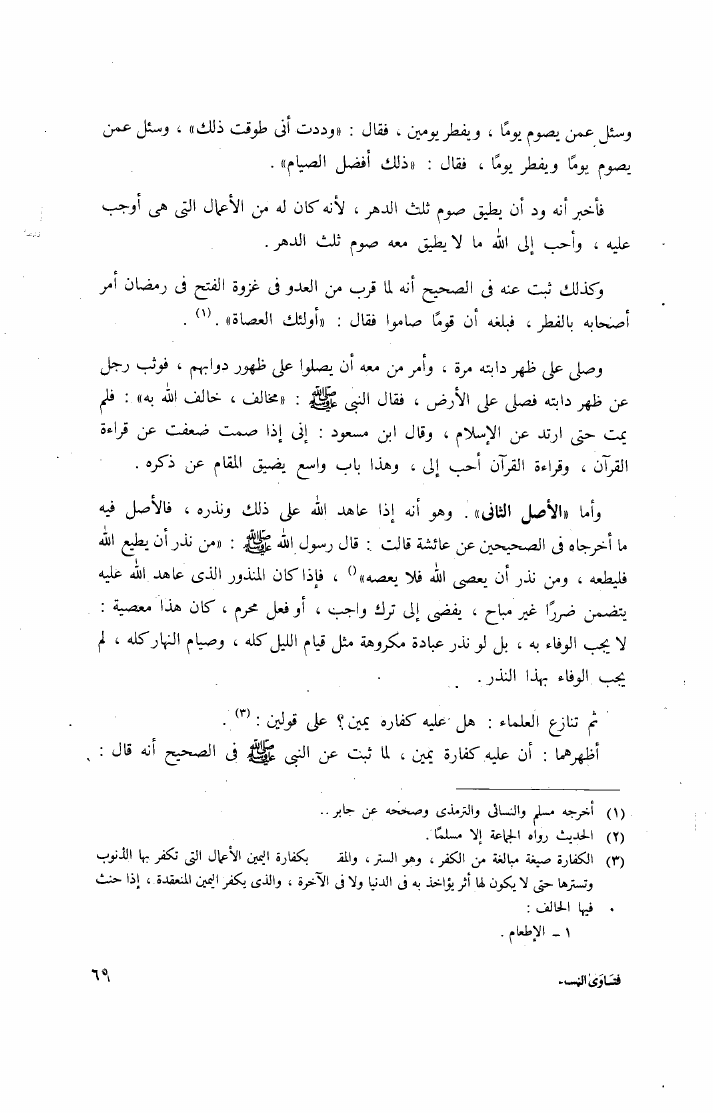 وسئل عمن يصوم يومًا ، ويفطر يومين ، فقال : «وددت أنى طوقت ذلك» ، وسئل عمن
يصوم يومًا ويفطر يومًا ، فقال : «ذلك أفضل الصيام» .
فأخبر أنه ود أن يطيق صوم ثلث الدهر ، لأنه كان له من الأعمال التى هى أوجب
عليه ، وأحب إلى الله ما لا يطيق معه صوم ثلث الدهر .
وكذلك ثبت عنه فى الصحيح أنه لما قرب من العدو فى غزوة الفتح فى رمضان أمر
أصحابه بالفطر ، فبلغه أن قومًا صاموا فقال : «أولئك العصاة» . (١) .
وصلى على ظهر دابته مرة ، وأمر من معه أن يصلوا على ظهور دوابهم ، فوثب رجل
عن ظهر دابته فصلى على الأرض ، فقال النبى ﷺ : «مخالف ، خالف الله به» : فلم
يمت حتى ارتد عن الإسلام ، وقال ابن مسعود : إنى إذا صمت ضعفت عن قراءة
القرآن ، وقراءة القرآن أحب إلى ، وهذا باب واسع يضيق المقام عن ذكره .
وأما «الأصل الثانى» . وهو أنه إذا عاهد الله على ذلك ونذره ، فالأصل فيه
ما أخرجاه فى الصحيحين عن عائشة قالت : قال رسول الله ﷺ : «من نذر أن يطيع الله
فليطعه ، ومن نذر أن يعصى الله فلا يعصه»() ، فإذا كان المنذور الذى عاهد الله عليه
يتضمن ضررًا غير مباح ، يفضى إلى ترك واجب ، أو فعل محرم ، كان هذا معصية :
لا يجب الوفاء به ، بل لو نذر عبادة مكروهة مثل قيام الليل كله ، وصيام النهار كله ، لم
يجب الوفاء بهذا النذر .
ثم تنازع العلماء : هل عليه كفاره يمين ؟ على قولين : (٣) .
أظهرهما : أن عليه كفارة يمين ، لما ثبت عن النبى ﷺ فى الصحيح أنه قال :
(١) أخرجه مسلم والنسائى والترمذى وصححه عن جابر ..
(٢) الحديث رواه الجماعة إلا مسلمًا .
(٣) الكفارة صيغة مبالغة من الكفر ، وهو الستر ، والمقـ بكفارة اليمين الأعمال التى تكفر بها الذنوب
وتسترها حتى لا يكون لها أثر يؤاخذ به فى الدنيا ولا فى الآخرة ، والذى يكفر اليمين المنعقدة ، إذا حنث
فيها الحالف :
١ – الإطعام .
فتاوى النسـ
٦٩